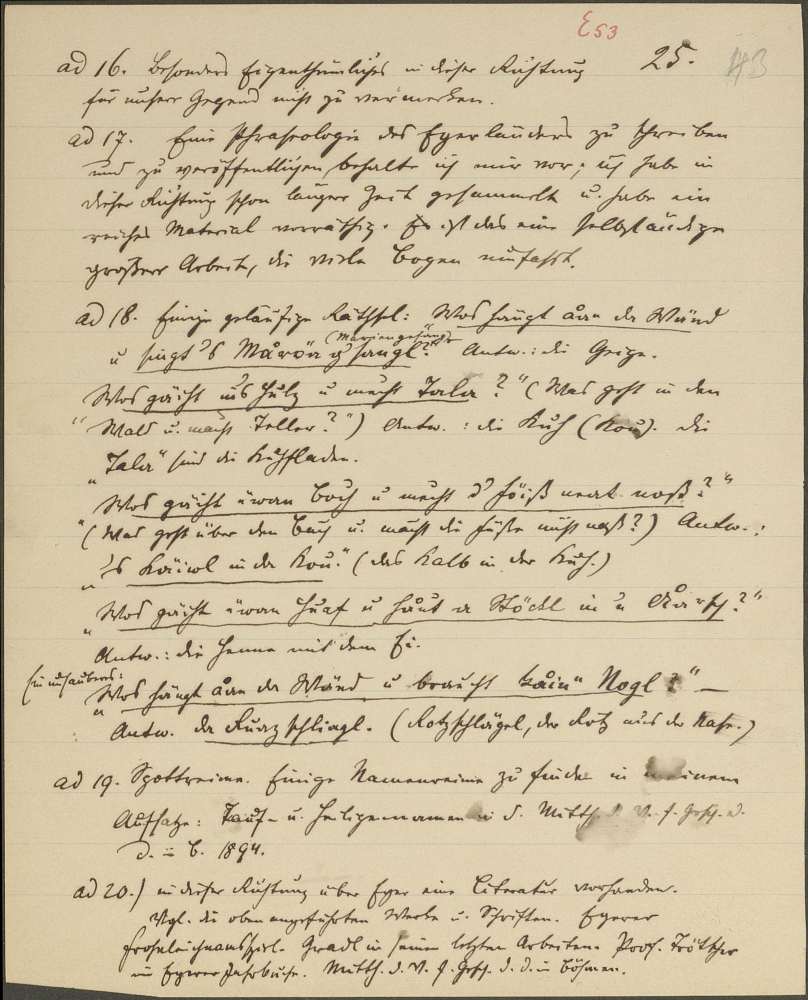 E53
25.
ad 16. Besonders Eigenthümliches in dieser Richtung
für unsere Gegend nicht zu vermerken.
ad 17. Eine Phraseologie des Egerländers zu schreiben
und zu veröffentlichen behalte ich mir vor; ich habe in
dieser Richtung schon längere Zeit gesammelt u. habe ein
reiches Material vorräthig. Es ist das eine selbständige
größere Arbeit, die viele Bogen umfasst.
ad 18. Einige geläufige Räthsel: Wos hängt åan da Wånd
(Mariengesänge)
u singt 's Maröna g'sangl?" Antw.: die Geige.
Wos gäiht ins Hulz u macht Tala?" (Was geht in den
"Wald u. macht Teller?") Antw.: die Kuh (Kou). Die
"Tala" sind die Kuhfladen.
Wos gäiht üwan Boch u macht d' Föiß neat noß?"
"(Was geht über den Bach u. macht die Füße nicht naß?) Antw.:
"'s Kaiwl in da Kou." (das Kalb in der Kuh.)
Wos gäiht üwan Huaf u håut a Stöckl in Oarsch?"
Antw.: die Henne mit dem Ei.
Ein unsauberes:
"Wos hängt åan da Wånd u braucht kåin Nogl?" –
Antw. da Ruazschliagl. (Rotzschlägel, der Rotz aus der Nase.)
ad 19. Spottreime. Einige Namenreime zu finden in meinem
Aufsatze: Tauf- u. Heiligennamen in d. Mitth. d. V. f. Gesch. d.
D. in B. 1894.
ad 20.) in dieser Richtung über Eger eine Literatur vorhanden.
Vgl. die oben angeführten Werke u. Schriften. Egerer
Frohnleichnamsspiel. Gradl in seinen letzten Arbeiten. Prof. Trötscher
im Egerer Jahrbuche. Mitth. d. V. f. Gesch. d. D. in Böhmen.